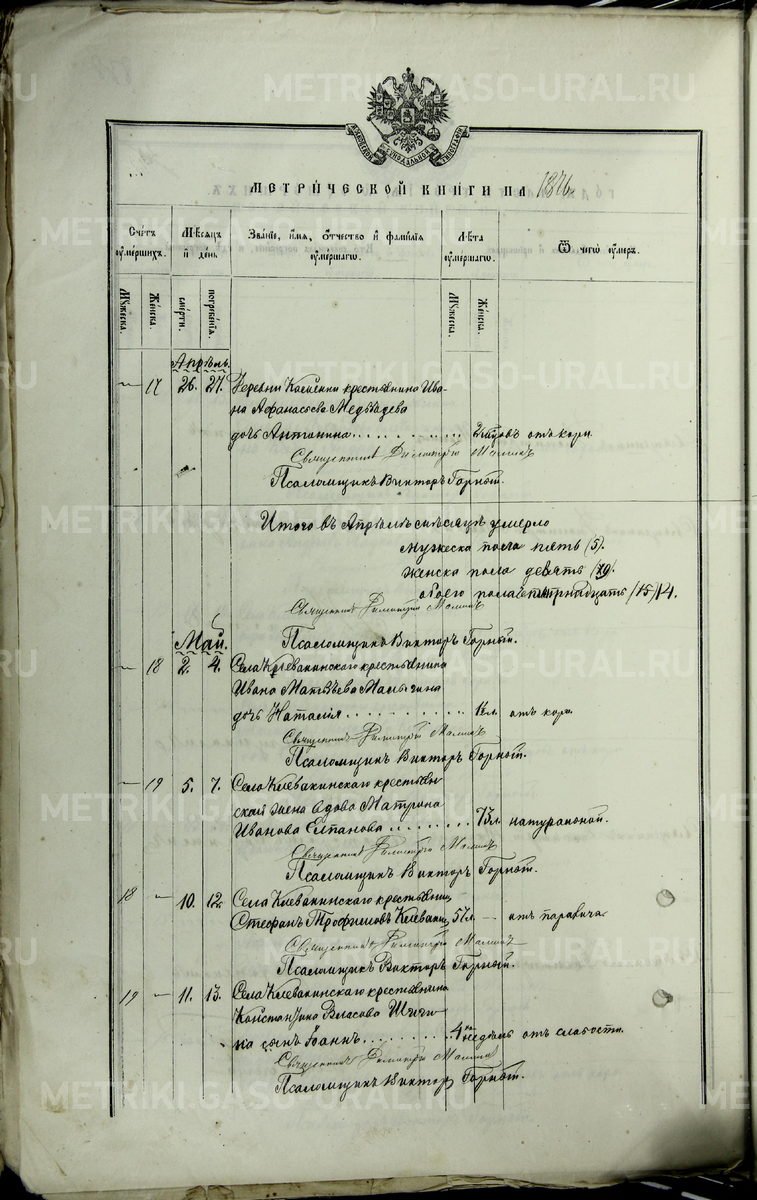 METRIKI.GASO-URAL.RU
МЕТРИ́ЧЕСКОЙ КНИ́ГИ НА 1876
Счетъ ᲂу҆ме́ршихъ.
Мѣсяцъ и҆ де́нь.
Зва́нїе, и҆́мя, ѻ҆́тчество и҆ фами́лїя ᲂу҆ме́ршагѡ.
Лѣ́та ᲂу҆ме́ршагѡ.
Ѿ чегѡ̀ ᲂу҆́меръ.
Мꙋ́жеска.
Же́нска.
сме́рти.
погребе́нїя.
Мꙋ́жеска.
Же́нска.
Апрѣль.
— 17 26. 27. Деревни крестьянина Ива-
на Афанасьева Медвѣдева
дочь Антонина . . . . . . . . . . отъ кори.
Священникъ Димитрій
Псаломщикъ Викторъ Горный.
Итого въ Апрѣлѣ мѣсяцѣ умерло
мужеска пола пять (5).
женска пола девять (9).
обоего пола 14.
Священникъ Димитрій
Псаломщикъ Викторъ Горный.
Май.
— 18 2. 4. Села Клевакинскаго крестьянина
Ивана
дочь Наталія . . . . . . . . . . отъ кори
Священникъ Димитрій
Псаломщикъ Викторъ Горный.
— 19 5. 7. Села Клевакинскаго крестьян-
ская жена вдова Матрона
Иванова Елпанова . . . . . . . . 73 л. натуральной.
Священникъ Димитрій
Псаломщикъ Викторъ Горный.
18 — 10. 12. Села Клевакинскаго крестьянинъ
Стефанъ Трофимовъ Клевакинъ 57 л. — отъ паралича
Священникъ Димитрій
Псаломщикъ Викторъ Горный.
19 — 11. 13. Села Клевакинскаго крестьянина
Константина Власова Шиги-
на сынъ Іоаннъ . . . . . . . . . 4 недѣль отъ слабости.
Священникъ Димитрій
Псаломщикъ Викторъ Горный.